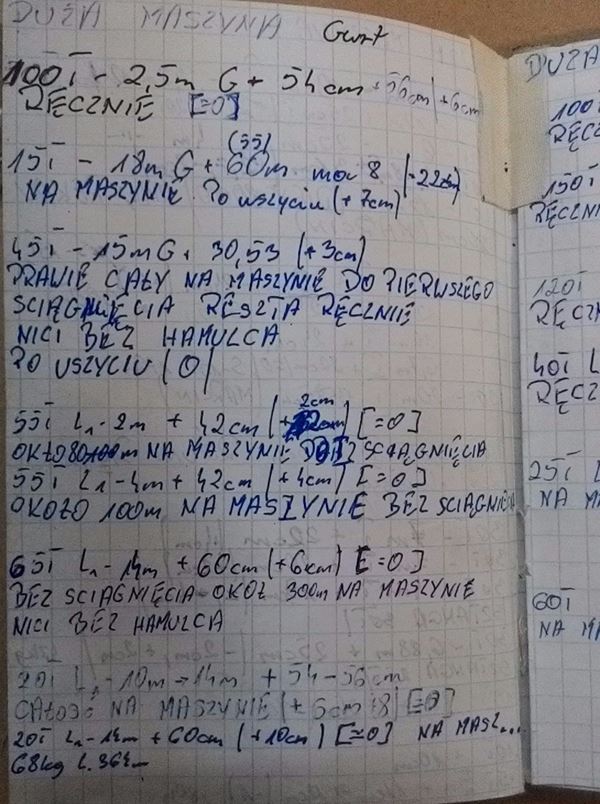 DUŻA MASZYNA
Gwnt
100T - 2,5m G + 54cm +56cm |+6cm
RĘCZNIE [=0]
(55)
15T - 18m G + 60m moc 8 (-22cm)
NA MASZYNIE Po uszyciu (+7cm)
45T - 15m G + 30,53 (+3cm)
PRAWIE CAŁY NA MASZYNIE DO PIERWSZEGO
SCIĄGNIĘCIA RESZTA RĘCZNIE
NICI BEZ HAMULCA
PO USZYCIU (0)
2cm
55T L1-2m + 42cm (+ ) [=0]
OKOŁO 80 m NA MASZYNIE BEZ SCIĄGNIĘCIA
55T L1-4m + 42cm (+4cm) [=0]
OKOŁO 100m NA MASZYNIE BEZ SCIĄGNIĘ
65T L1-14m + 60cm (+6cm) [=0]
BEZ SCIĄGNIĘCIA OKOŁ 300m NA MASZYNIE
NICI BEZ HAMULCA
20T L1-10m→14m + 54-56cm
CAŁOŚĆ NA MASZYNIE (+6cm 8) [=0]
20T L1-14m + 60cm (+10cm) [=0] NA MASZ...
68kg L.364m
DUŻA
100T
RĘCZ
150T
RĘCZNI
120T
RĘCZ
40T L
RĘCZ
25T
NA M
60T
NA MA